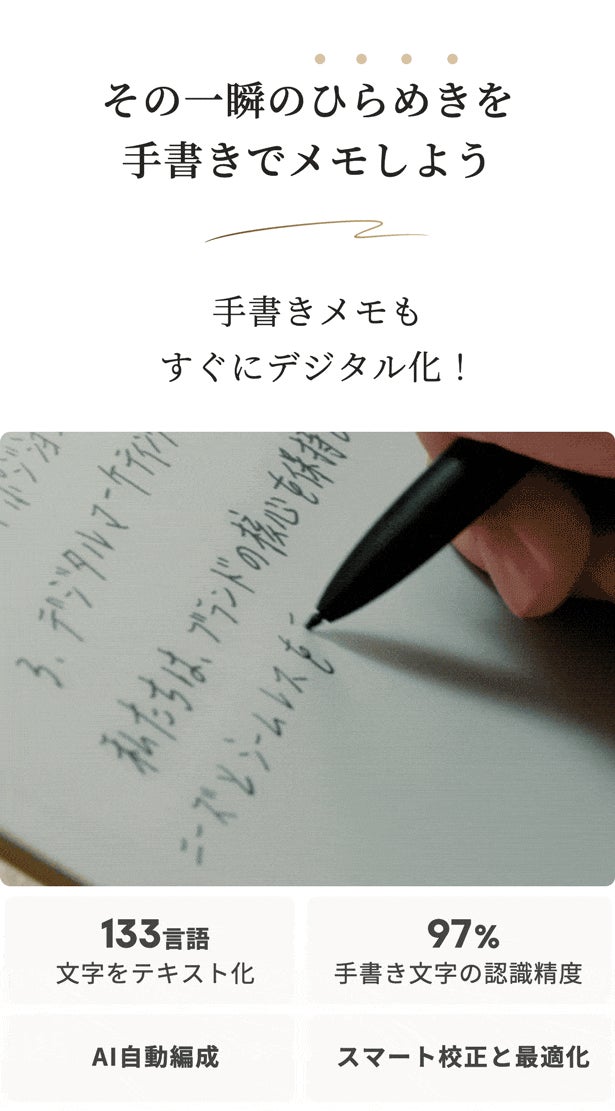 その一瞬のひらめきを
手書きでメモしよう
手書きメモも
すぐにデジタル化！
3、デジタルマーケティン
私たちは、ブランドの核心を保持し
ニーズとシームレスを
133言語
文字をテキスト化
97%
手書き文字の認識精度
AI自動編成
スマート校正と最適化